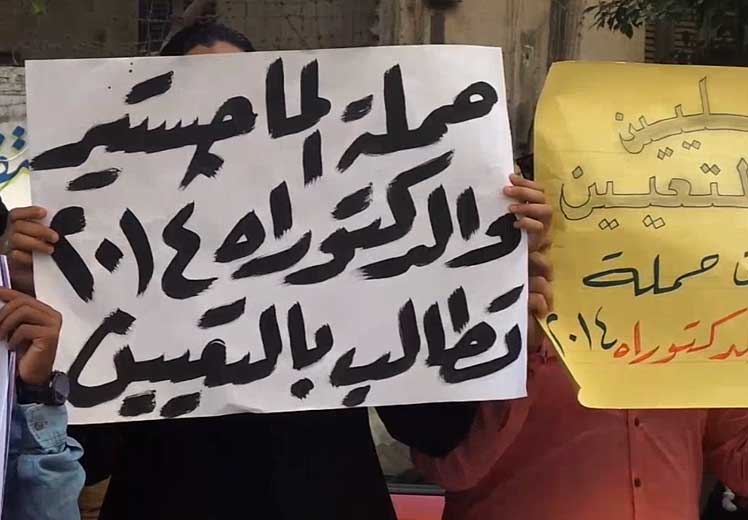 حملة الماجستير
والدكتوراه ٢٠١٤
تطالب بالتعيين
التعيين
حملة
دكتوراه ٢٠١٤